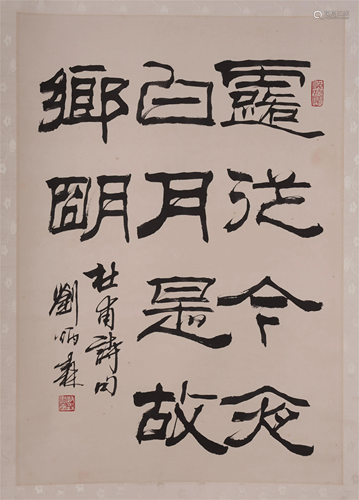 露從今夜
白月是故
鄉朙
杜甫詩句
劉炳森